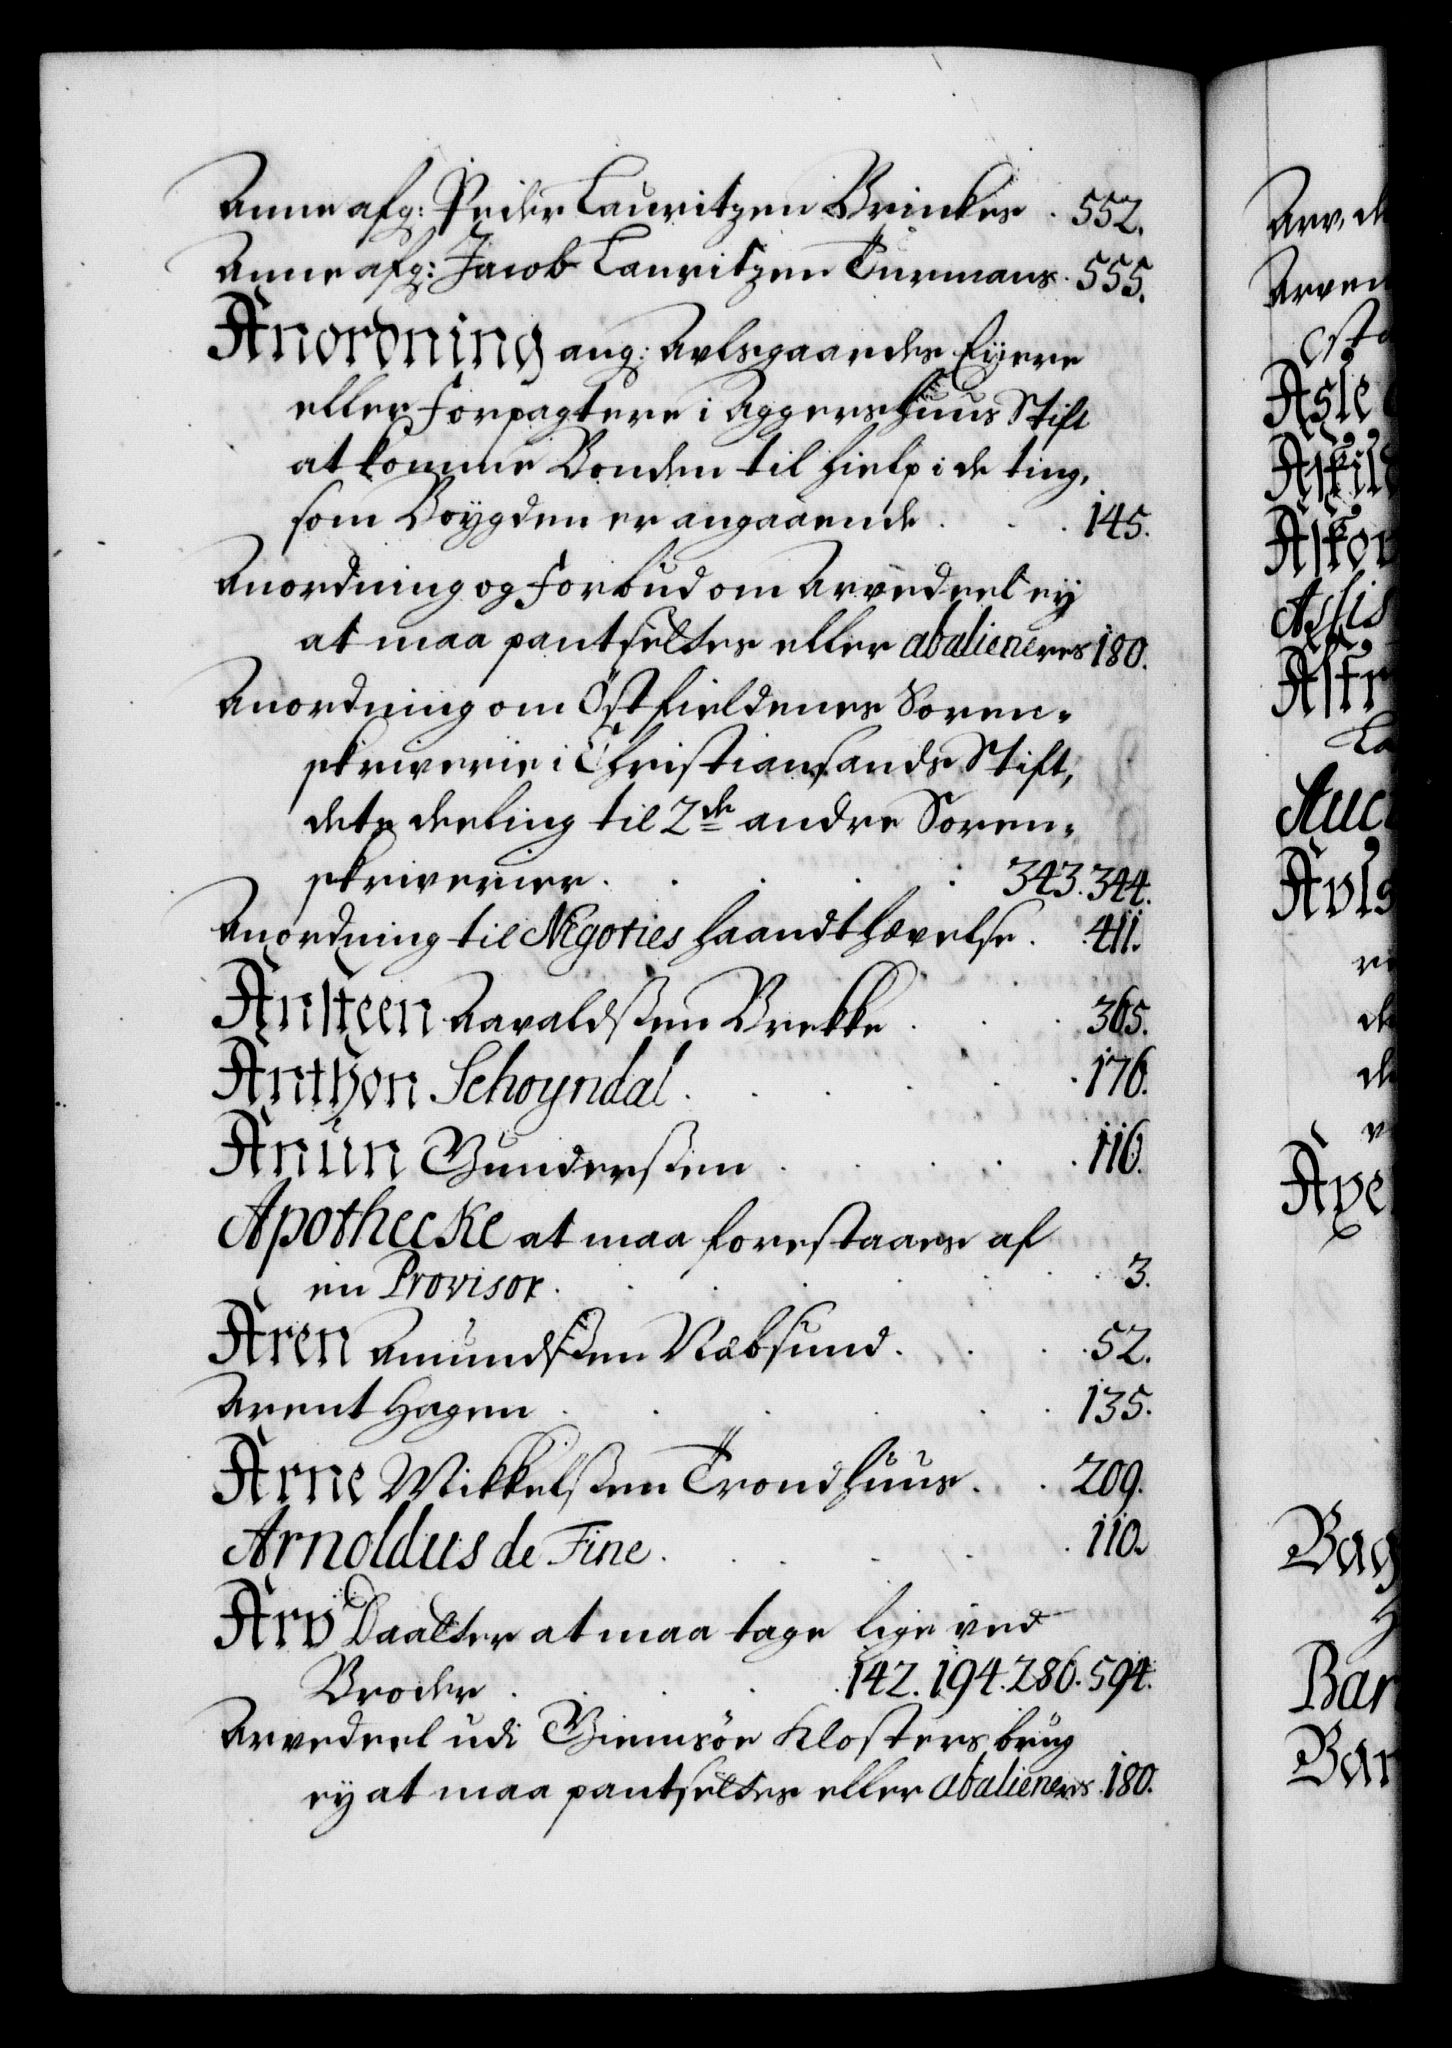 Anne afg: Peder Lauritzen Brinkes . 552.
Anne afg: Jacob Lauritzen Turmans . 555.
Anordning ang: Avlsgaardes Eyere
eller Forpagtere i Aggershuus Stift
at komme Bonden til hielp i de ting,
som Boygden er angaaende . . . 145.
Anordning og Forbud om Arvedeel ey
at maa pantsettes eller abalieneres 180.
Anordning om Østfieldenes Soren-
skriverie i Christiansands Stift,
dets deeling til 2de andre Soren-
skriverier . . . . 343. 344.
Anordning til Negoties haandthævelse . 411.
Ansteen Aavaldsen Brekke . . . 365.
Anthon Schoyndal . . . . 176.
Anun Gundersen . . . . 116.
Apothecke at maa forestaaes af
en Provisor . . . . 3.
Aren Amundsen Næbsund . . . 52.
Arent Hagen . . . . 135.
Arne Mikkelsen Trondhuus . . 209.
Arnoldus de Fine . . . . 110.
Arv Daatter at maa tage lige ved
Broder . . . 142. 194. 286. 594.
Arvedeel udi Giemsøe Klosters brug
ey at maa pantsettes eller abalieneres . 180.
Arv, de
Arven
Asle
Askild
Askor
Assis
Astr
La
Auc
Avls
de
de
Axe
Bag
H
Bar
Bar